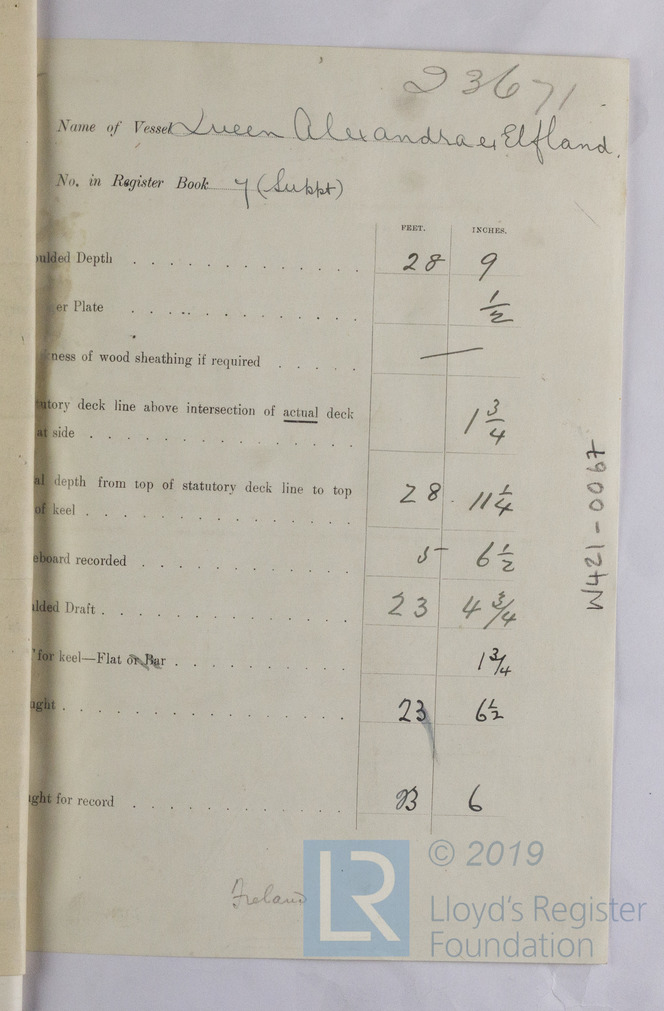 23671
Name of Vessel Queen Alexandra ex Elfland.
No. in Register Book 7 (Suppt)
FEET. INCHES.
oulded Depth 28 9
er Plate 1/2
kness of wood sheathing if required —
tutory deck line above intersection of actual deck
at side 1 3/4
al depth from top of statutory deck line to top
of keel 28 11 1/4
eboard recorded 5 6 1/2
ulded Draft 23 4 3/4
for keel—Flat or Bar 1 3/4
aught 23 6 1/2
ught for record 23 6
Ireland
W421-0067
LR
© 2019
Lloyd's Register
Foundation